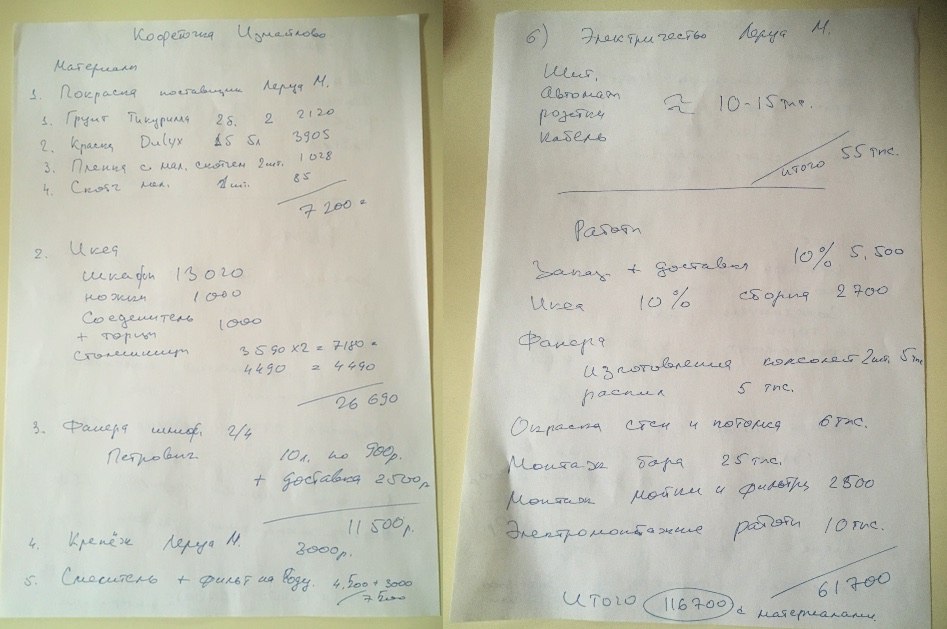 Кофеточка Измайлово
Материалы
1. Покраска поставщик Леруа М.
1. Грунт Тикурила 2б. 2 2120
2. Краска Dulux 5л 3905
3. Пленка с мал. скотчем 2шт. 1028
4. Скотч мал. 1шт. 85
7 200 =
2. Икея
шкафы 13020
ножки 1000
Соеденитель
+ торцы 1000
Столешницы 3590x2 = 7180 =
4490 = 4490
26 690
3. Фанера шлиф. 2/4
Петрович 10л. по 900р.
+ доставка 2500р
11 500р.
4. Крепёж Леруа М. 3000р.
5. Смеситель + фильт на воду. 4,500 + 3000
7500
6) Электричество Леруа М.
Щит.
Автомат
розетки ≈ 10-15 тыс.
кабель
итого 55 тыс.
Работы
Закуп + доставка 10% 5,500
Икея 10% сборка 2700
Фанера
изготовления консолей 2шт. 5 тыс
распил 5 тыс.
Окраска стен и потолка 6 тыс.
Монтаж бара 25 тыс.
Монтаж мойки и фильтры 2500
Электромонтажние работы 10 тыс.
61 700
Итого 116700 с материалами.